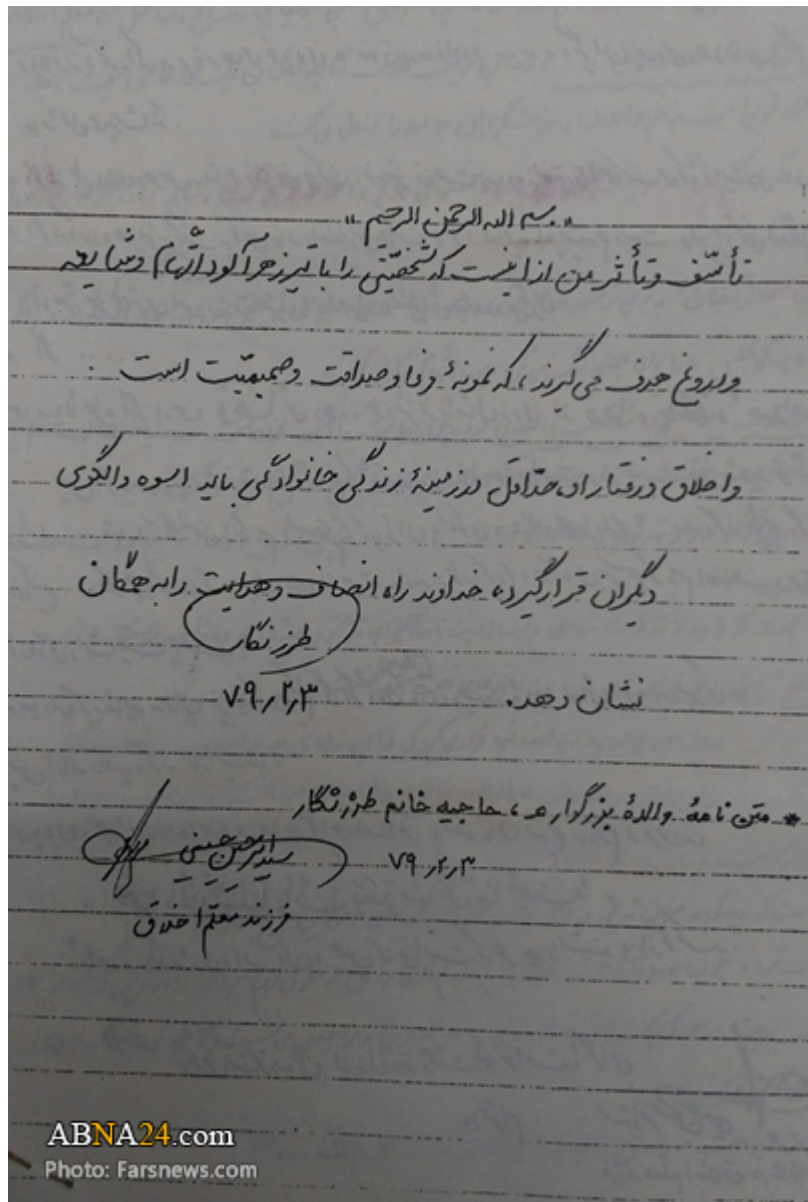 « بسم الله الرحمن الرحیم »
تأسّف و تأثر من از اینست که شخصیّتی را با تیر زهرآلود اتّهام و شایعه
و دروغ هدف می‌گیرند، که نمونهٔ وفا و صداقت و صمیمیّت است.
و اخلاق و رفتار او، حدّاقل در زمینهٔ زندگی خانوادگی باید اسوه و الگوی
دیگران قرار گیرد، خداوند راه انصاف و هدایت را به همگان
طرزنگار
نشان دهد. ۷۹٫۲٫۳
* متن نامهٔ والدهٔ بزرگوارم، حاجیه خانم طرزنگار
۷۹٫۲٫۳ سید ابوالحسن حسینی
فرزند معلم اخلاق
ABNA24.com
Photo: Farsnews.com